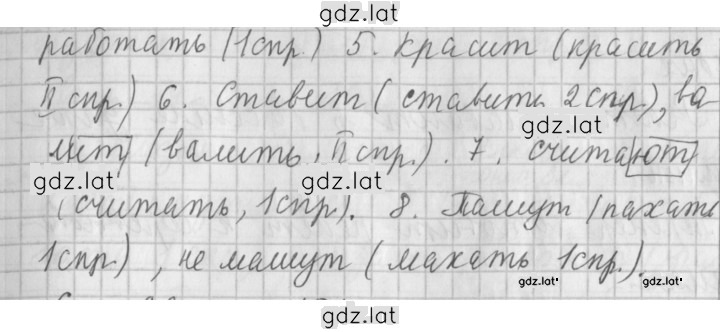 gdz.lat
работать (1спр.) 5. красит (красить
II спр.) 6. Ставит (ставить 2спр.), ва-
gdz.lat
лит (валить, II спр.). 7. считают
gdz.lat
(считать, 1спр.). 8. Пашут (пахать
1спр.), не машут (махать 1спр.).
gdz.lat gdz.lat
gdz.lat